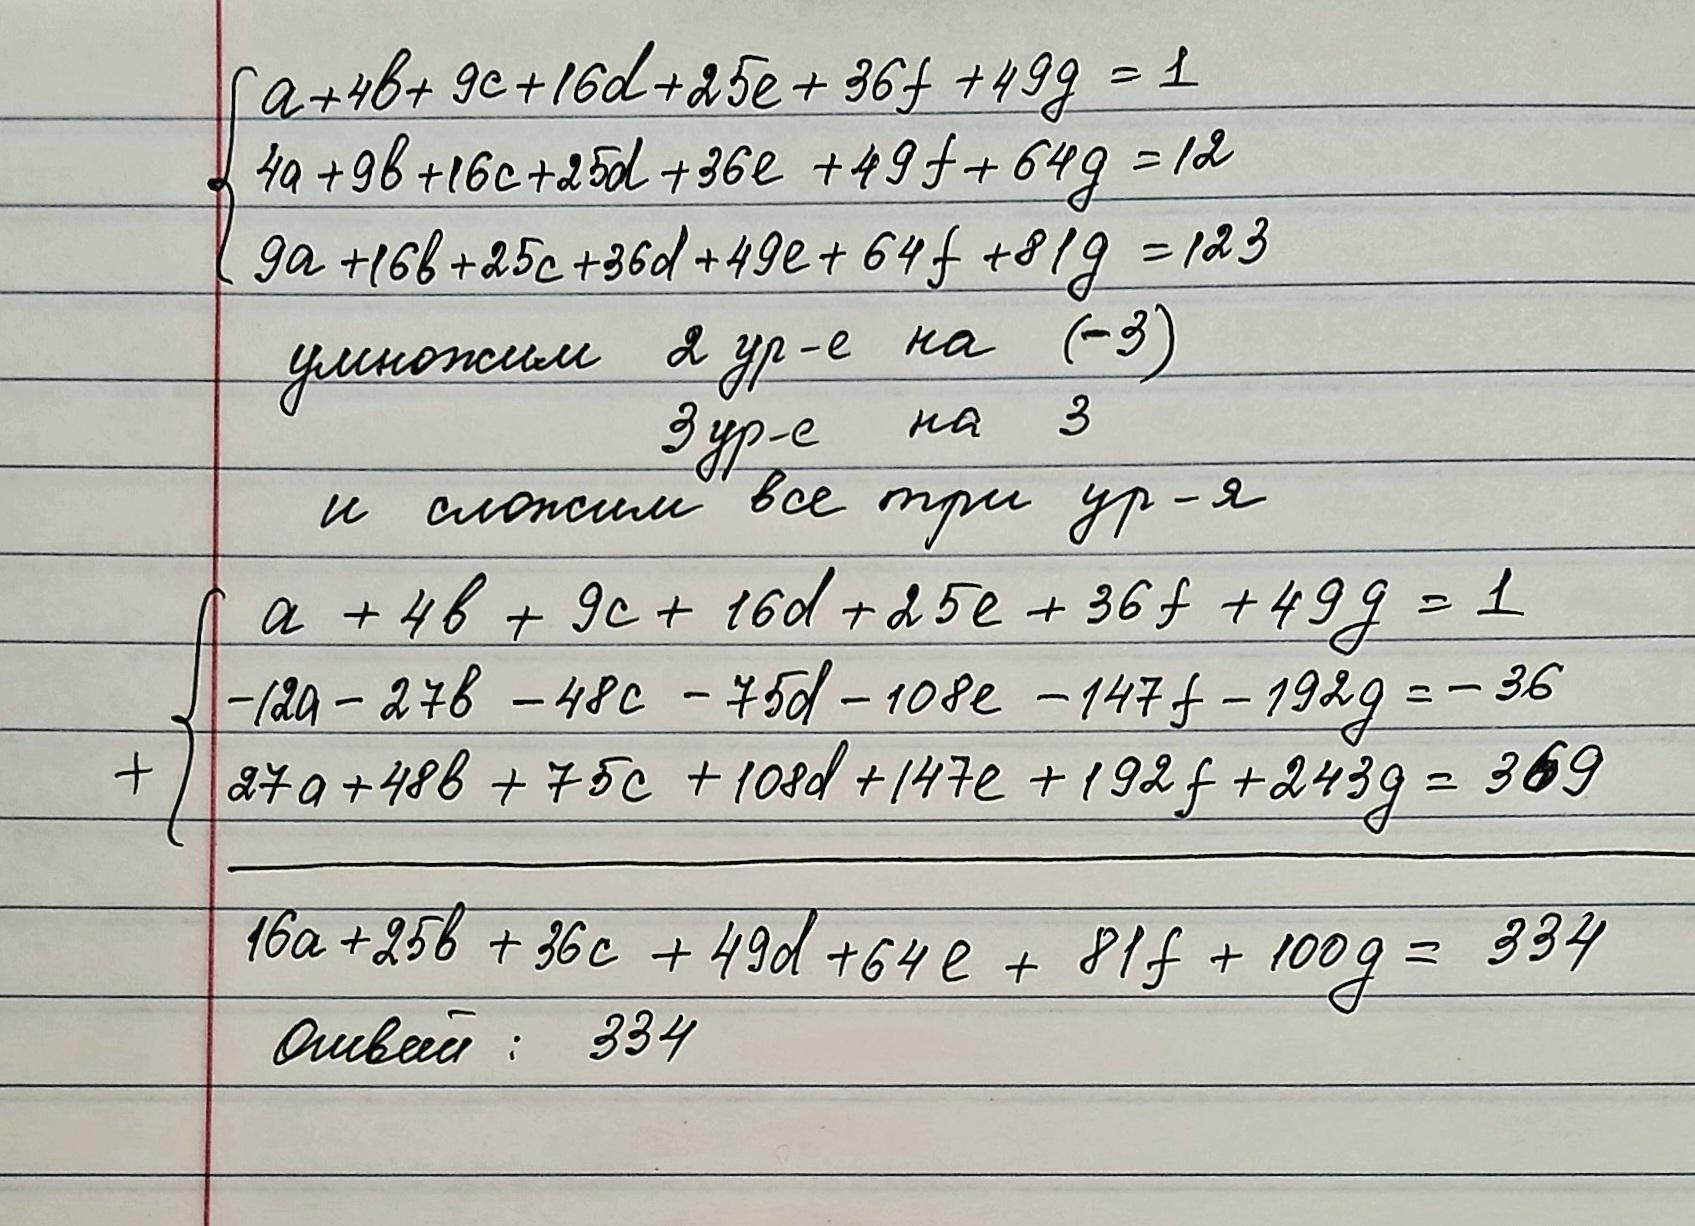 a+4b+9c+16d+25e+36f+49g=1
4a+9b+16c+25d+36e+49f+64g=12
9a+16b+25c+36d+49e+64f+81g=123
умножим 2 ур-е на (-3)
3 ур-е на 3
и сложим все три ур-я
a+4b+9c+16d+25e+36f+49g=1
-12a-27b-48c-75d-108e-147f-192g=-36
+ 27a+48b+75c+108d+147e+192f+243g=369
16a+25b+36c+49d+64e+81f+100g=334
Ответ: 334